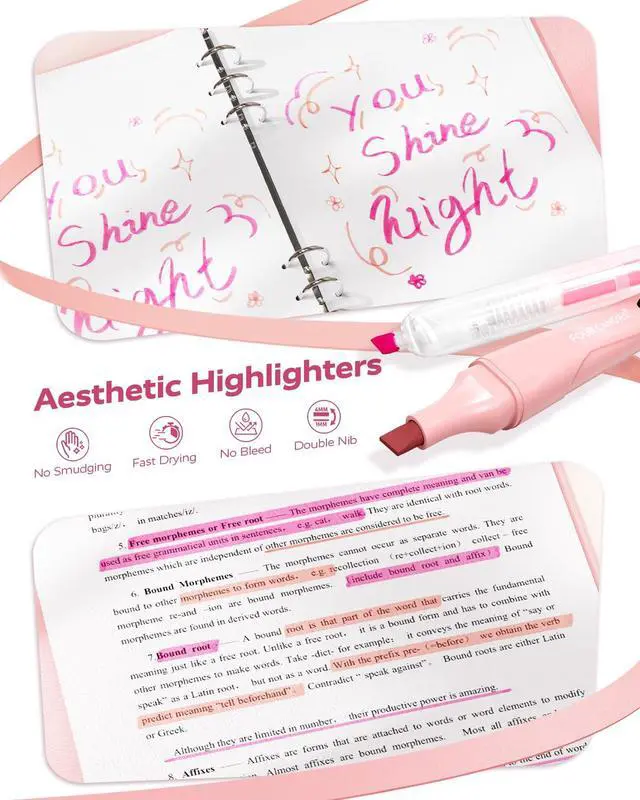 You
Shine
You
Shine
Night
Night
Aesthetic Highlighters
No Smudging
Fast Drying
No Bleed
4MM
1MM
Double Nib
bags/z/, in matches/iz/.
5. Free morphemes or Free root —— The morphemes have complete meaning and van be
used as free grammatical units in sentences, e.g. cat, walk. They are identical with root words.
morphemes which are independent of other morphemes are considered to be free.
6. Bound Morphemes —— The morphemes cannot occur as separate words. They are
bound to other morphemes to form words, e.g. recollection (re+collect+ion) collect – free
morpheme re-and –ion are bound morphemes. (include bound root and affix) Bound
morphemes are found in derived words.
7.Bound root —— A bound root is that part of the word that carries the fundamental
meaning just like a free root. Unlike a free root, it is a bound form and has to combine with
other morphemes to make words. Take -dict- for example: it conveys the meaning of "say or
speak" as a Latin root, but not as a word. With the prefix pre- (=before) we obtain the verb
predict meaning "tell beforehand". Contradict " speak against". Bound roots are either Latin
or Greek.
Although they are limited in number, their productive power is amazing.
8. Affixes —— Affixes are forms that are attached to words or word elements to modify
Almost affixes are bound morphemes. Most all affixes
to the end of word